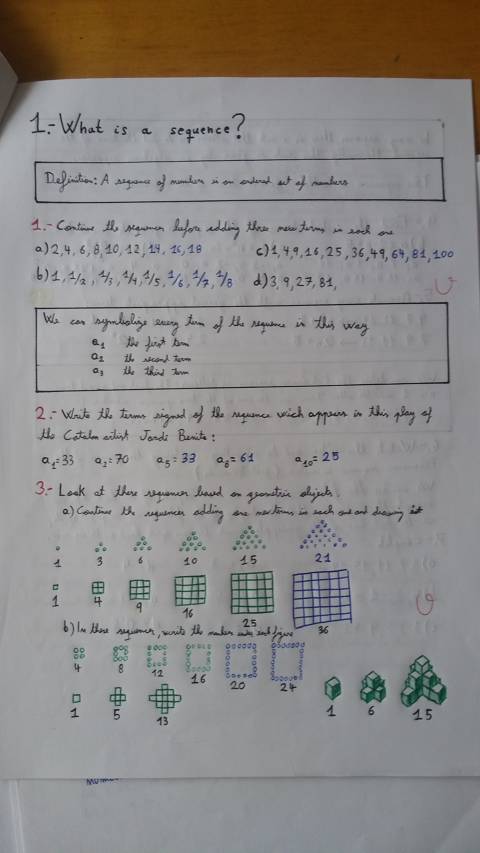 1.- What is a sequence?
Definition: A sequence of numbers is an ordered set of numbers
1.- Continue the sequences before adding three new terms in each one
a) 2, 4, 6, 8, 10, 12, 14, 16, 18
c) 1, 4, 9, 16, 25, 36, 49, 64, 81, 100
b) 1, 1/2, 1/3, 1/4, 1/5, 1/6, 1/7, 1/8
d) 3, 9, 27, 81,
We can symbolize every term of the sequence in this way
a1 the first term
a2 the second term
a3 the third term
2.- Write the terms signed of the sequence wich appears in this play of
the Catalan artist Jordi Benito:
a1=33 a2=70 a5=33 a8=61 a10=25
3.- Look at these sequences based on geometric objects.
a) Continue the sequences adding one new terms in each one and drawing it
1 3 6 10 15 21
1 4 9 16 25 36
b) In these sequences, write the number under each figure
4 8 12 16 20 24
1 5 13
1 6 15